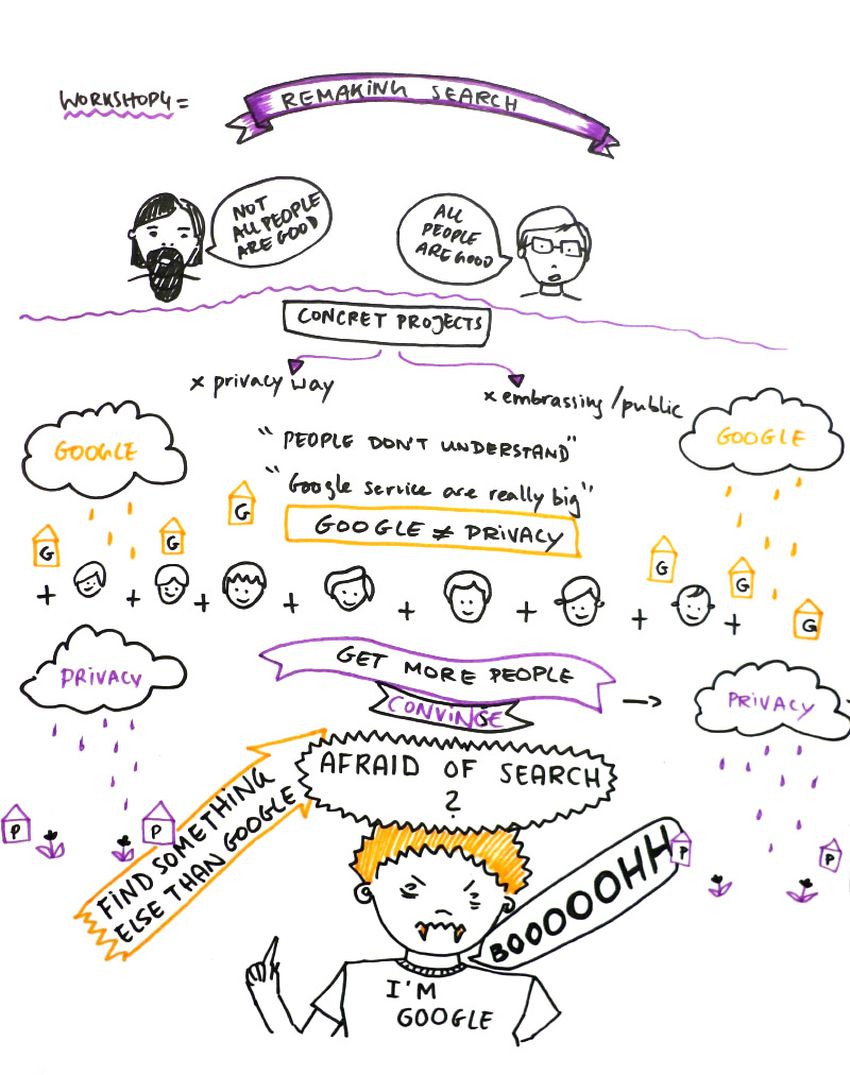 WORKSHOP4 =
REMAKING SEARCH
NOT
ALL PEOPLE
ARE GOOD
ALL
PEOPLE
ARE GOOD
CONCRET PROJECTS
x privacy way
x embrassing/public
GOOGLE
GOOGLE
"PEOPLE DON'T UNDERSTAND"
"Google service are really big"
GOOGLE ≠ PRIVACY
G
G
G
G
G
G
+ + + + + + + +
PRIVACY
GET MORE PEOPLE
CONVINSE
→
PRIVACY
AFRAID OF SEARCH
?
FIND SOMETHING
ELSE THAN GOOGLE
P
P
P
P
BOOOOOHH
I'M
GOOGLE